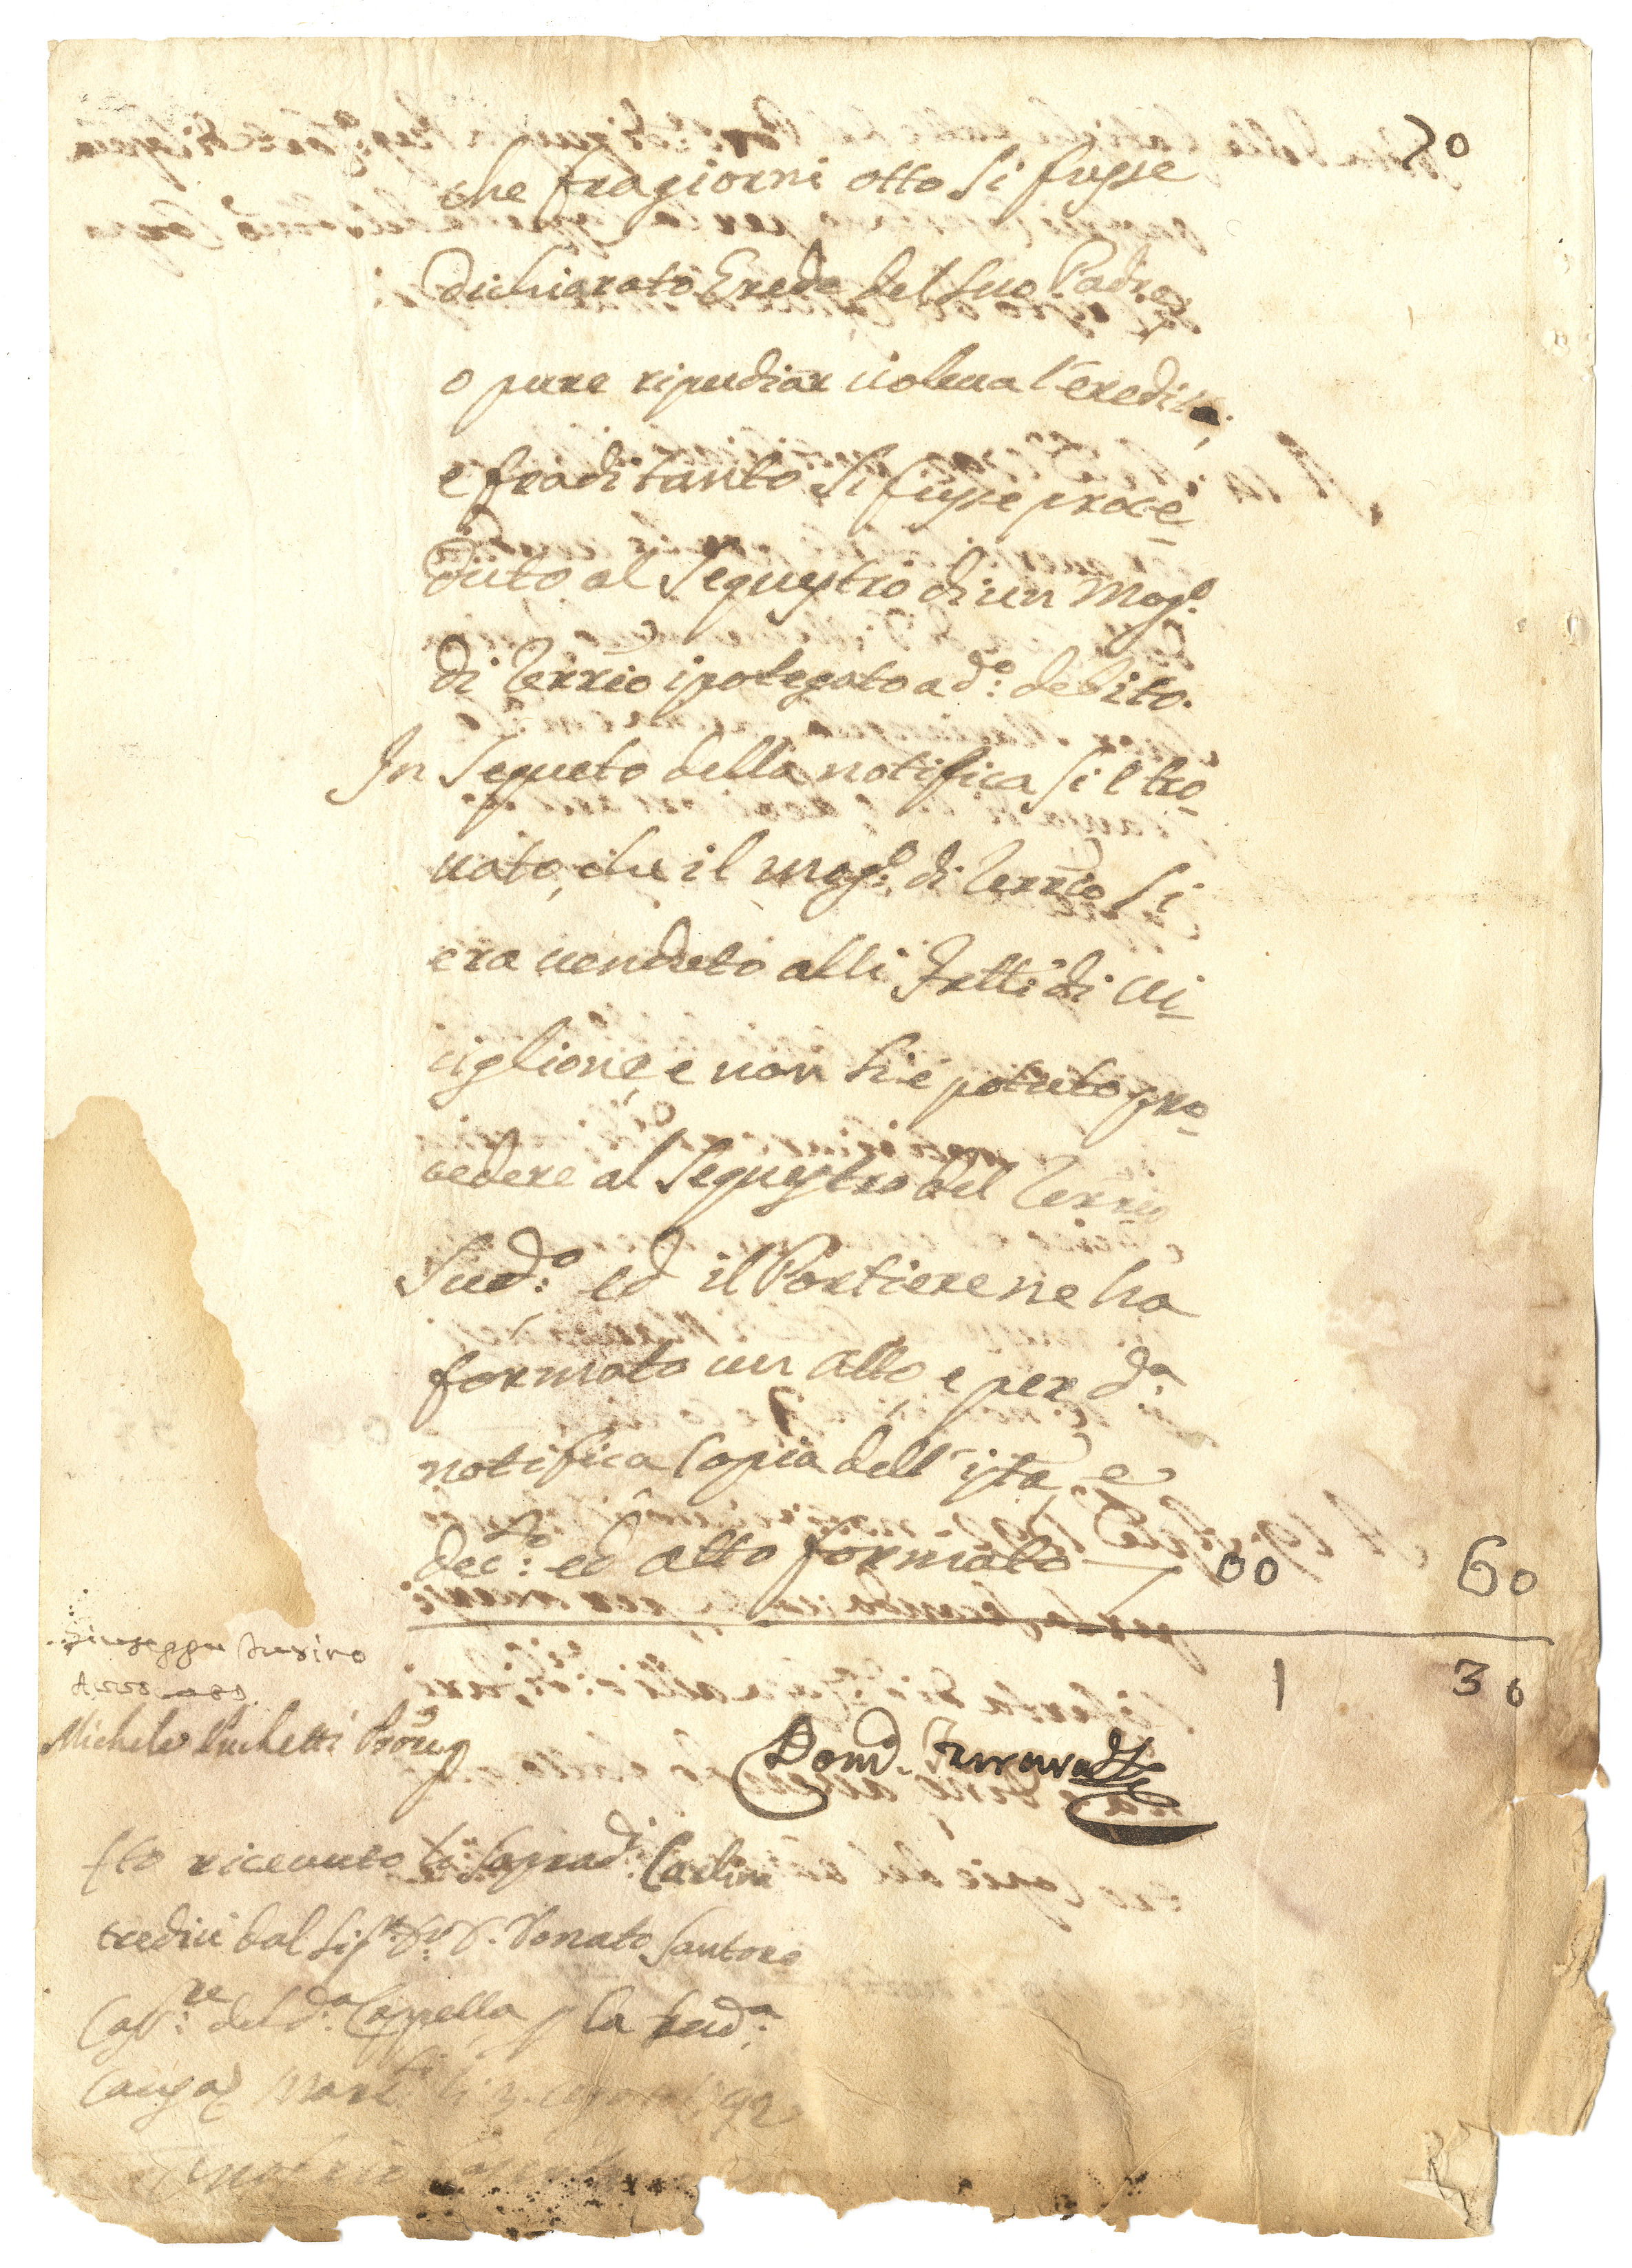 50
che fra giorni otto si fusse
dichiarato Erede del suo Padre,
o pure ripudiar voleva l'eredità;
e fraditanto si fusse proce-
duto al sequestro di un Mog.º
di Terr̃io ipotegato a d.º debito.
In sequeto della notifica si è tro-
vato, che il mog.º di Terr̃io si
era venduto alli Fratti di Vi-
viglione, e non si è potuto pro-
cedere al sequestro del Terr̃io
Sud.º, ed il Portiere ne ha
formato un atto, e per d.ª
notifica copia dell'ista, e
dec.to: ed atto formato — 00 60
1 30
Giuseppe
Michele
Dom.
Ho ricevuto li soprad.i Carlini
tredici dal Sig.re D. Donato Santoro
Cass.re del d.ª Cappella, p la sud.ª
Causa,